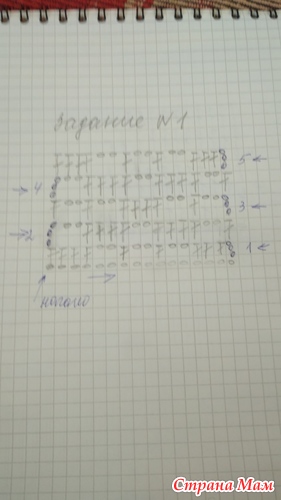 Задание №1
5 ←
→ 4
3 ←
→ 2
1 ←
→
начало
Страна Мам